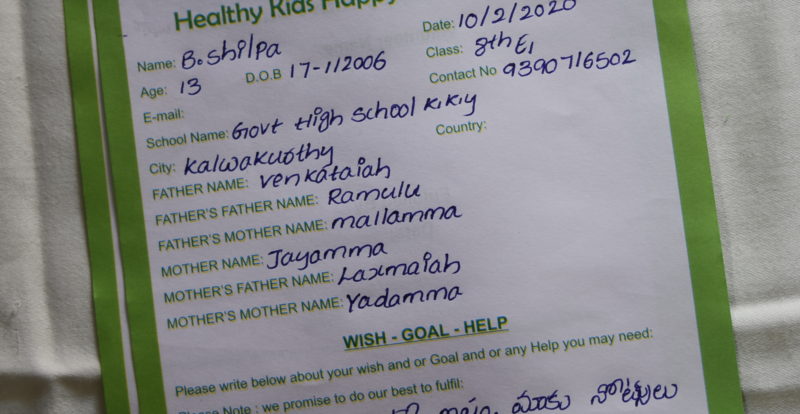 Healthy Kids Happy
Date: 10/2/2020
Name: B. Shilpa
Class: 8th E1
Age: 13 D.O.B 17-1/2006
Contact No 9390716502
E-mail:
School Name: Govt High School K.K.Y
Country:
City: Kalwakurthy
FATHER NAME: Venkataiah
FATHER'S FATHER NAME: Ramulu
FATHER'S MOTHER NAME: mallamma
MOTHER NAME: Jayamma
MOTHER'S FATHER NAME: Laxmaiah
MOTHER'S MOTHER NAME: Yadamma
WISH - GOAL - HELP
Please write below about your wish and or Goal and or any Help you may need:
Please Note : we promise to do our best to fulfil:
మాకు నోట్బుక్లు